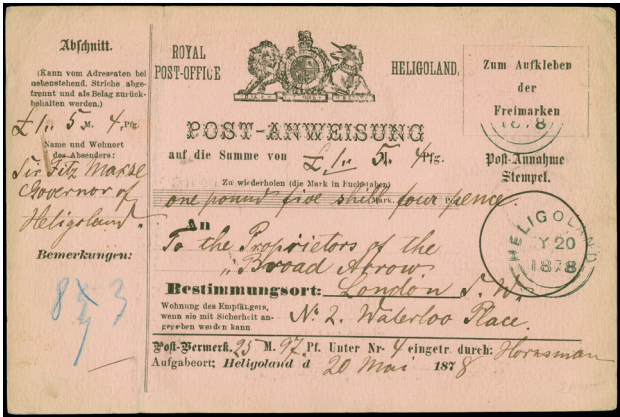 Abschnitt.
(Kann vom Adressaten bei
nebenstehend. Striche abge-
trennt und als Belag zurück-
behalten werden.)
£1 " 5 M. 4 Pfg.
Name und Wohnort
des Absenders:
Sir Fitz Maxse
Governor of
Heligoland.
Bemerkungen:
ROYAL
POST-OFFICE
HELIGOLAND,
Zum Aufkleben
der
Freimarken
1878
POST-ANWEISUNG
auf die Summe von £1 " 5 M. 4 Pfg.
Zu wiederholen (die Mark in Buchstaben)
one pound five shill Mark. four pence
Post-Annahme
Stempel.
An
To the Proprietors of the
" Broad Arrow.
HELIGOLAND
Y 20
1878
Bestimmungsort: London S. W.
Wohnung des Empfängers,
wenn sie mit Sicherheit an-
gegeben werden kann
No 2. Waterloo Place.
Post-Vermerk. 25 M. 97 Pf. Unter Nr- 4 eingetr. durch:
Aufgabeort: Heligoland d 20 Mai 1878